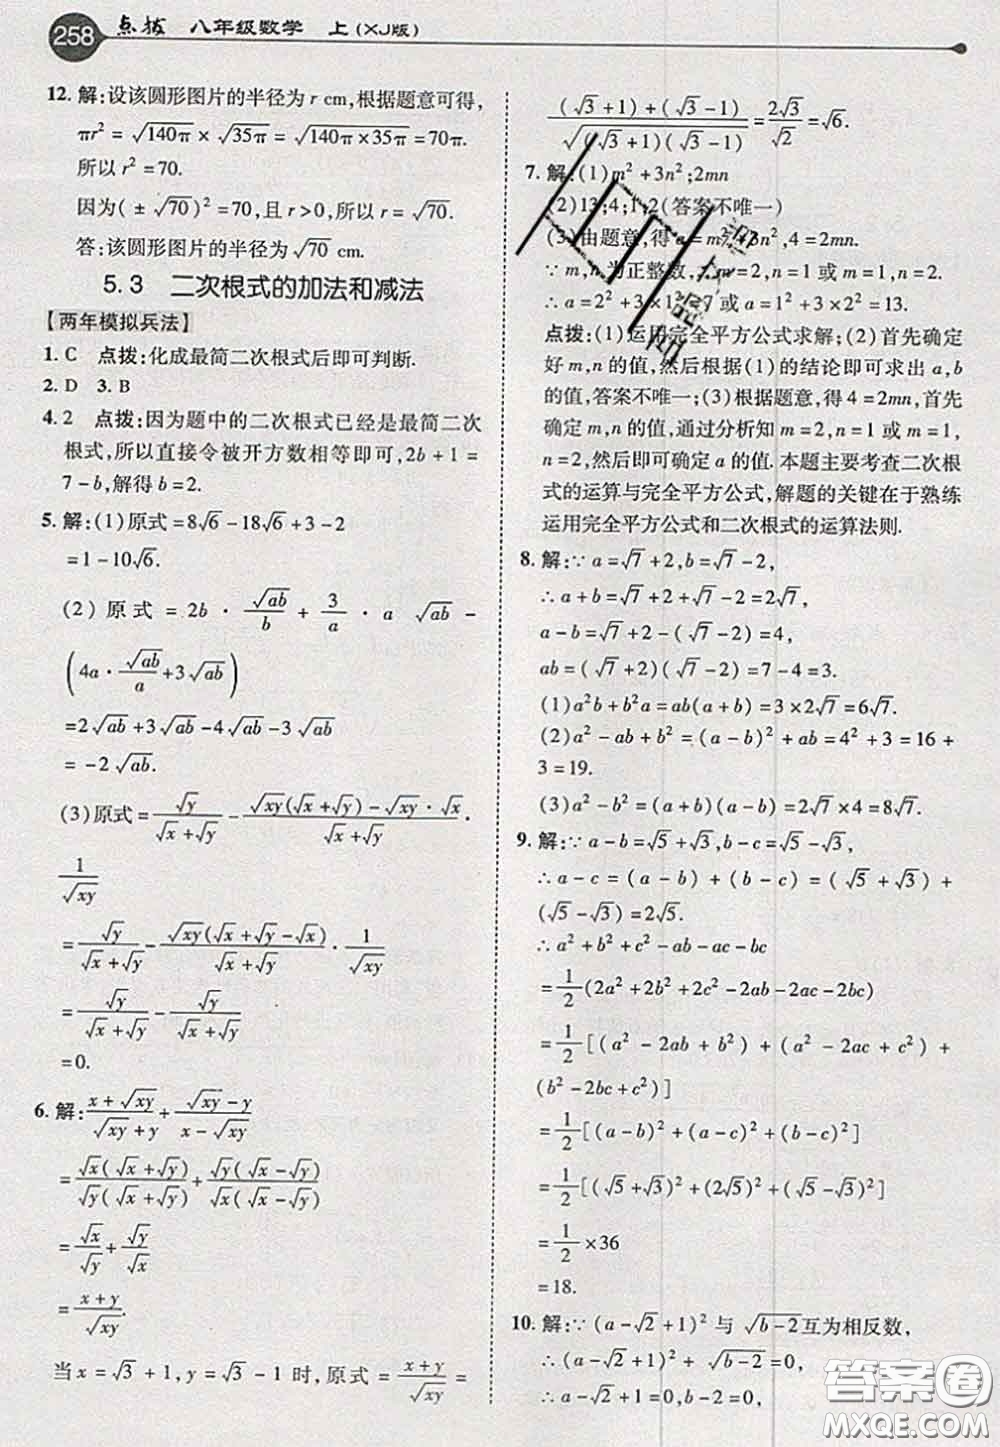 258 点拨 八年级数学 上(XJ版)
12. 解:设该圆形图片的半径为 r cm,根据题意可得,
πr² = √(140π) × √(35π) = √(140π×35π) = 70π.
所以 r² = 70.
因为(±√70)² = 70,且 r>0,所以 r = √70.
答:该圆形图片的半径为√70 cm.
5.3 二次根式的加法和减法
【两年模拟兵法】
1. C 点拨:化成最简二次根式后即可判断.
2. D 3. B
4. 2 点拨:因为题中的二次根式已经是最简二次
根式,所以直接令被开方数相等即可,2b+1=
7-b,解得 b=2.
5. 解:(1)原式=8√6-18√6+3-2
=1-10√6.
(2)原式=2b·√(ab)/b+3/a·a√(ab)-
(4a·√(ab)/a+3√(ab))
=2√(ab)+3√(ab)-4√(ab)-3√(ab)
=-2√(ab).
(3)原式=√y/(√x+√y)-(√(xy)(√x+√y)-√(xy)·√x)/(√x+√y)·
1/√(xy)
=√y/(√x+√y)-√(xy)(√x+√y-√x)/(√x+√y)·1/√(xy)
=√y/(√x+√y)-√y/(√x+√y)
=0.
6. 解:(x+√(xy))/(√(xy)+y)+(√(xy)-y)/(x-√(xy))
=√x(√x+√y)/(√y(√x+√y))+√y(√x-√y)/(√x(√x-√y))
=√x/√y+√y/√x
=(x+y)/√(xy).
当 x=√3+1,y=√3-1 时,原式=(x+y)/√(xy)=
((√3+1)+(√3-1))/√((√3+1)(√3-1))=2√3/√2=√6.
7. 解:(1)m²+3n²;2mn
(2)13;4;1;2(答案不唯一)
(3)由题意,得 a=m²+3n²,4=2mn.
∵m,n 为正整数,∴m=2,n=1 或 m=1,n=2.
∴a=2²+3×1²=7 或 a=1²+3×2²=13.
点拨:(1)运用完全平方公式求解;(2)首先确定
好 m,n 的值,然后根据(1)的结论即可求出 a,b
的值,答案不唯一;(3)根据题意,得 4=2mn,首先
确定 m,n 的值,通过分析知 m=2,n=1 或 m=1,
n=2,然后即可确定 a 的值.本题主要考查二次根
式的运算与完全平方公式,解题的关键在于熟练
运用完全平方公式和二次根式的运算法则.
8. 解:∵a=√7+2,b=√7-2,
∴a+b=√7+2+√7-2=2√7,
a-b=√7+2-(√7-2)=4,
ab=(√7+2)(√7-2)=7-4=3.
(1)a²b+b²a=ab(a+b)=3×2√7=6√7.
(2)a²-ab+b²=(a-b)²+ab=4²+3=16+
3=19.
(3)a²-b²=(a+b)(a-b)=2√7×4=8√7.
9. 解:∵a-b=√5+√3,b-c=√5-√3,
∴a-c=(a-b)+(b-c)=(√5+√3)+
(√5-√3)=2√5.
∴a²+b²+c²-ab-ac-bc
=1/2(2a²+2b²+2c²-2ab-2ac-2bc)
=1/2[(a²-2ab+b²)+(a²-2ac+c²)+
(b²-2bc+c²)]
=1/2[(a-b)²+(a-c)²+(b-c)²]
=1/2[(√5+√3)²+(2√5)²+(√5-√3)²]
=1/2×36
=18.
10. 解:∵(a-√2+1)² 与 √(b-2)互为相反数,
∴(a-√2+1)²+√(b-2)=0,
∴a-√2+1=0,b-2=0,
答案圈
MXQE.COM